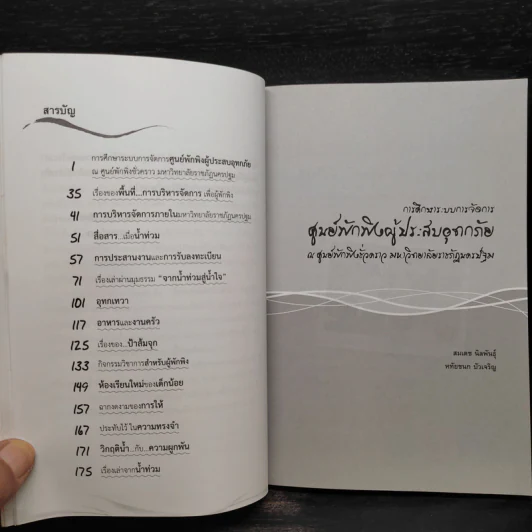 สารบัญ
1 การศึกษาระบบการจัดการศูนย์พักพิงผู้ประสบอุทกภัย
ณ ศูนย์พักพิงชั่วคราว มหาวิทยาลัยราชภัฏนครปฐม
35 เรื่องของพื้นที่...การบริหารจัดการ เพื่อผู้พักพิง
41 การบริหารจัดการภายในมหาวิทยาลัยราชภัฏนครปฐม
51 สื่อสาร...เมื่อน้ำท่วม
57 การประสานงานและการรับลงทะเบียน
71 เรื่องเล่าผ่านมุมธรรม "จากน้ำท่วมสู่น้ำใจ"
101 อุทกเทวา
117 อาหารและงานครัว
125 เรื่องของ...ป้าส้มจุก
133 กิจกรรมวิชาการสำหรับผู้พักพิง
149 ห้องเรียนใหม่ของเด็กน้อย
157 ฉากงดงามของการให้
167 ประทับไว้ ในความทรงจำ
171 วิกฤติน้ำ...กับ...ความผูกพัน
175 เรื่องเล่าจากน้ำท่วม
การศึกษาระบบการจัดการ
ศูนย์พักพิงผู้ประสบอุทกภัย
ณ ศูนย์พักพิงชั่วคราว มหาวิทยาลัยราชภัฏนครปฐม
สมเดช นิลพันธุ์
หทัยชนก บัวเจริญ